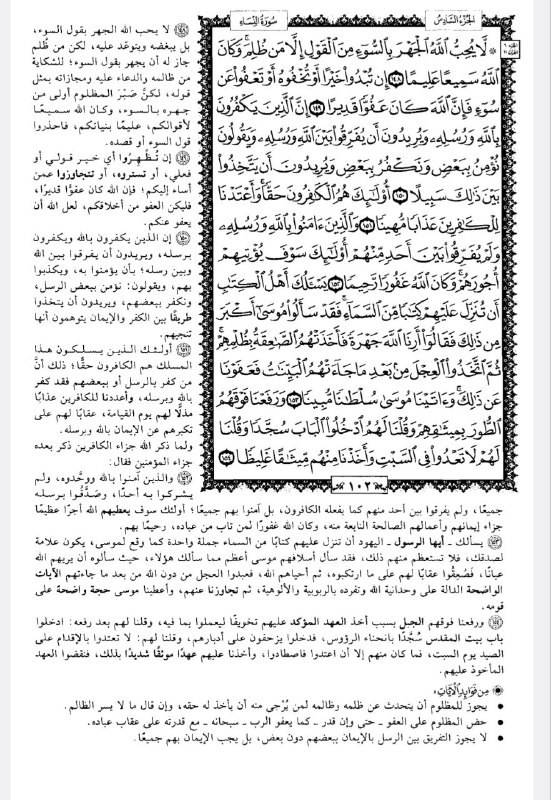 الجزء السادس
سورة النساء
* لَّا يُحِبُّ ٱللَّهُ ٱلْجَهْرَ بِٱلسُّوٓءِ مِنَ ٱلْقَوْلِ إِلَّا مَن ظُلِمَ ۚ وَكَانَ
ٱللَّهُ سَمِيعًا عَلِيمًا ١٤٨ إِن تُبْدُوا۟ خَيْرًا أَوْ تُخْفُوهُ أَوْ تَعْفُوا۟ عَن
سُوٓءٍ فَإِنَّ ٱللَّهَ كَانَ عَفُوًّا قَدِيرًا ١٤٩ إِنَّ ٱلَّذِينَ يَكْفُرُونَ
بِٱللَّهِ وَرُسُلِهِۦ وَيُرِيدُونَ أَن يُفَرِّقُوا۟ بَيْنَ ٱللَّهِ وَرُسُلِهِۦ وَيَقُولُونَ
نُؤْمِنُ بِبَعْضٍ وَنَكْفُرُ بِبَعْضٍ وَيُرِيدُونَ أَن يَتَّخِذُوا۟
بَيْنَ ذَٰلِكَ سَبِيلًا ١٥٠ أُو۟لَٰٓئِكَ هُمُ ٱلْكَٰفِرُونَ حَقًّا ۚ وَأَعْتَدْنَا
لِلْكَٰفِرِينَ عَذَابًا مُّهِينًا ١٥١ وَٱلَّذِينَ ءَامَنُوا۟ بِٱللَّهِ وَرُسُلِهِۦ
وَلَمْ يُفَرِّقُوا۟ بَيْنَ أَحَدٍ مِّنْهُمْ أُو۟لَٰٓئِكَ سَوْفَ يُؤْتِيهِمْ
أُجُورَهُمْ ۗ وَكَانَ ٱللَّهُ غَفُورًا رَّحِيمًا ١٥٢ يَسْـَٔلُكَ أَهْلُ ٱلْكِتَٰبِ
أَن تُنَزِّلَ عَلَيْهِمْ كِتَٰبًا مِّنَ ٱلسَّمَآءِ ۚ فَقَدْ سَأَلُوا۟ مُوسَىٰٓ أَكْبَرَ
مِن ذَٰلِكَ فَقَالُوٓا۟ أَرِنَا ٱللَّهَ جَهْرَةً فَأَخَذَتْهُمُ ٱلصَّٰعِقَةُ بِظُلْمِهِمْ ۚ
ثُمَّ ٱتَّخَذُوا۟ ٱلْعِجْلَ مِنۢ بَعْدِ مَا جَآءَتْهُمُ ٱلْبَيِّنَٰتُ فَعَفَوْنَا
عَن ذَٰلِكَ ۚ وَءَاتَيْنَا مُوسَىٰ سُلْطَٰنًا مُّبِينًا ١٥٣ وَرَفَعْنَا فَوْقَهُمُ
ٱلطُّورَ بِمِيثَٰقِهِمْ وَقُلْنَا لَهُمُ ٱدْخُلُوا۟ ٱلْبَابَ سُجَّدًا وَقُلْنَا
لَهُمْ لَا تَعْدُوا۟ فِى ٱلسَّبْتِ وَأَخَذْنَا مِنْهُم مِّيثَٰقًا غَلِيظًا ١٥٤
١٠٢
١٤٨ لا يحب الله الجهر بقول السوء،
بل يبغضه ويتوعّد عليه، لكن من ظُلم
جاز له أن يجهر بقول السوء؛ للشكاية
من ظالمه والدعاء عليه ومجازاته بمثل
قوله، لكنَّ صَبْرَ المظلوم أولى من
جهره بالسوء، وكان الله سميعًا
لأقوالكم، عليمًا بنياتكم، فاحذروا
قول السوء أو قصده.
١٤٩ إن تُظْهِرُوا أي خير قولي أو
فعلي، أو تستروه، أو تتجاوزوا عمن
أساء إليكم؛ فإن الله كان عفوًّا قديرًا،
فليكن العفو من أخلاقكم، لعل الله أن
يعفو عنكم.
١٥٠ إن الذين يكفرون بالله ويكفرون
برسله، ويريدون أن يفرقوا بين الله
وبين رسله؛ بأن يؤمنوا به، ويكذبوا
بهم، ويقولون: نؤمن ببعض الرسل،
ونكفر ببعضهم، ويريدون أن يتخذوا
طريقًا بين الكفر والإيمان يتوهمون أنها
تنجيهم.
١٥١ أولئك الذين يسلكون هذا
المسلك هم الكافرون حقًّا؛ ذلك أنَّ
من كفر بالرسل أو ببعضهم فقد كفر
بالله وبرسله، وأعددنا للكافرين عذابًا
مذلًّا لهم يوم القيامة، عقابًا لهم على
تكبرهم عن الإيمان بالله وبرسله.
ولما ذكر الله جزاء الكافرين ذكر بعده
جزاء المؤمنين فقال:
١٥٢ والذين آمنوا بالله ووحدوه، ولم
يشركوا به أحدًا، وصَدَّقُوا برسله
جميعًا، ولم يفرقوا بين أحد منهم كما يفعله الكافرون، بل آمنوا بهم جميعًا؛ أولئك سوف يعطيهم الله أجرًا عظيمًا
جزاء إيمانهم وأعمالهم الصالحة النابعة منه، وكان الله غفورًا لمن تاب من عباده، رحيمًا بهم.
١٥٣ يسألك - أيها الرسول - اليهود أن تنزل عليهم كتابًا من السماء جملة واحدة كما وقع لموسى، يكون علامة
لصدقك، فلا تستعظم منهم ذلك، فقد سأل أسلافهم موسى أعظم مما سألك هؤلاء، حيث سألوه أن يريهم الله
عيانًا، فصَعِقُوا عقابًا لهم على ما ارتكبوه، ثم أحياهم الله، فعبدوا العجل من دون الله من بعد ما جاءتهم الآيات
الواضحة الدالة على وحدانية الله وتفرده بالربوبية والألوهية، ثم تجاوزنا عنهم، وأعطينا موسى حجة واضحة على
قومه.
١٥٤ ورفعنا فوقهم الجبل بسبب أخذ العهد المؤكد عليهم تخويفًا ليعملوا بما فيه، وقلنا لهم بعد رفعه: ادخلوا
باب بيت المقدس سُجَّدًا بانحناء الرؤوس، فدخلوا يزحفون على أدبارهم، وقلنا لهم: لا تعتدوا بالإقدام على
الصيد يوم السبت، فما كان منهم إلا أن اعتدوا فاصطادوا، وأخذنا عليهم عهدًا موثقًا شديدًا بذلك، فنقضوا العهد
المأخوذ عليهم.
من فوائد الآيات:
• يجوز للمظلوم أن يتحدث عن ظلمه وظالمه لمن يُرْجى منه أن يأخذ له حقه، وإن قال ما لا يسر الظالم.
• حض المظلوم على العفو - حتى وإن قدر - كما يعفو الرب - سبحانه - مع قدرته على عقاب عباده.
• لا يجوز التفريق بين الرسل بالإيمان ببعضهم دون بعض، بل يجب الإيمان بهم جميعًا.